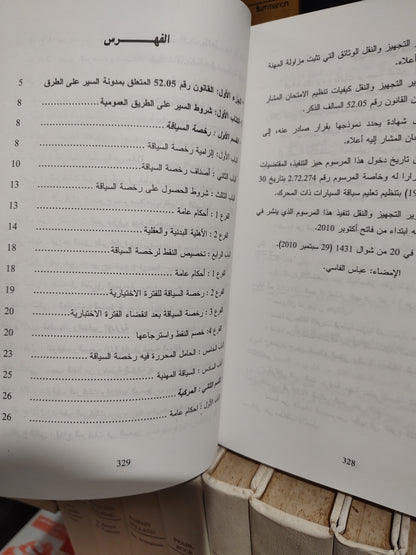 ير التجهيز والنقل الوثائق التي تثبت مزاولة المهنة
أعلاه.
ير التجهيز والنقل كيفيات تنظيم الامتحان المشار
القانون رقم 52.05 السالف الذكر.
شهادة يحدد نموذجها بقرار صادر عنه، إلى
ن المشار إليه أعلاه.
تاريخ دخول هذا المرسوم حيز التنفيذ، المقتضيات
له وخاصة المرسوم رقم 2.72.274 الصادر في 30
بتنظيم تعليم سياقة السيارات ذات المحرك.
ير التجهيز والنقل تنفيذ هذا المرسوم الذي ينشر في
به ابتداء من فاتح أكتوبر 2010.
في 20 من شوال 1431 (29 سبتمبر 2010).
الإمضاء: عباس الفاسي.
328
الفهــرس
الجزء الأول: القانون رقم 52.05 المتعلق بمدونة السير على الطرق 5
الكتاب الأول: شروط السير على الطريق العمومية 8
القسم الأول: رخصة السياقة 8
الباب الأول: إلزامية رخصة السياقة 8
الباب الثاني: أصناف رخصة السياقة 10
الباب الثالث: شروط الحصول على رخصة السياقة 13
الفرع 1: أحكام عامة 13
الفرع 2: الأهلية البدنية والعقلية 14
الباب الرابع: تخصيص النقط لرخصة السياقة 18
الفرع 1: أحكام عامة 18
الفرع 2: رخصة السياقة للفترة الاختبارية 19
الفرع 3: رخصة السياقة بعد انقضاء الفترة الاختبارية 20
الفرع 4: خصم النقط واسترجاعها 20
الباب الخامس: الحامل المحررة فيه رخصة السياقة 23
الباب السادس: السياقة المهنية 25
القسم الثاني: المركبة 26
الباب الأول: أحكام عامة 26
329